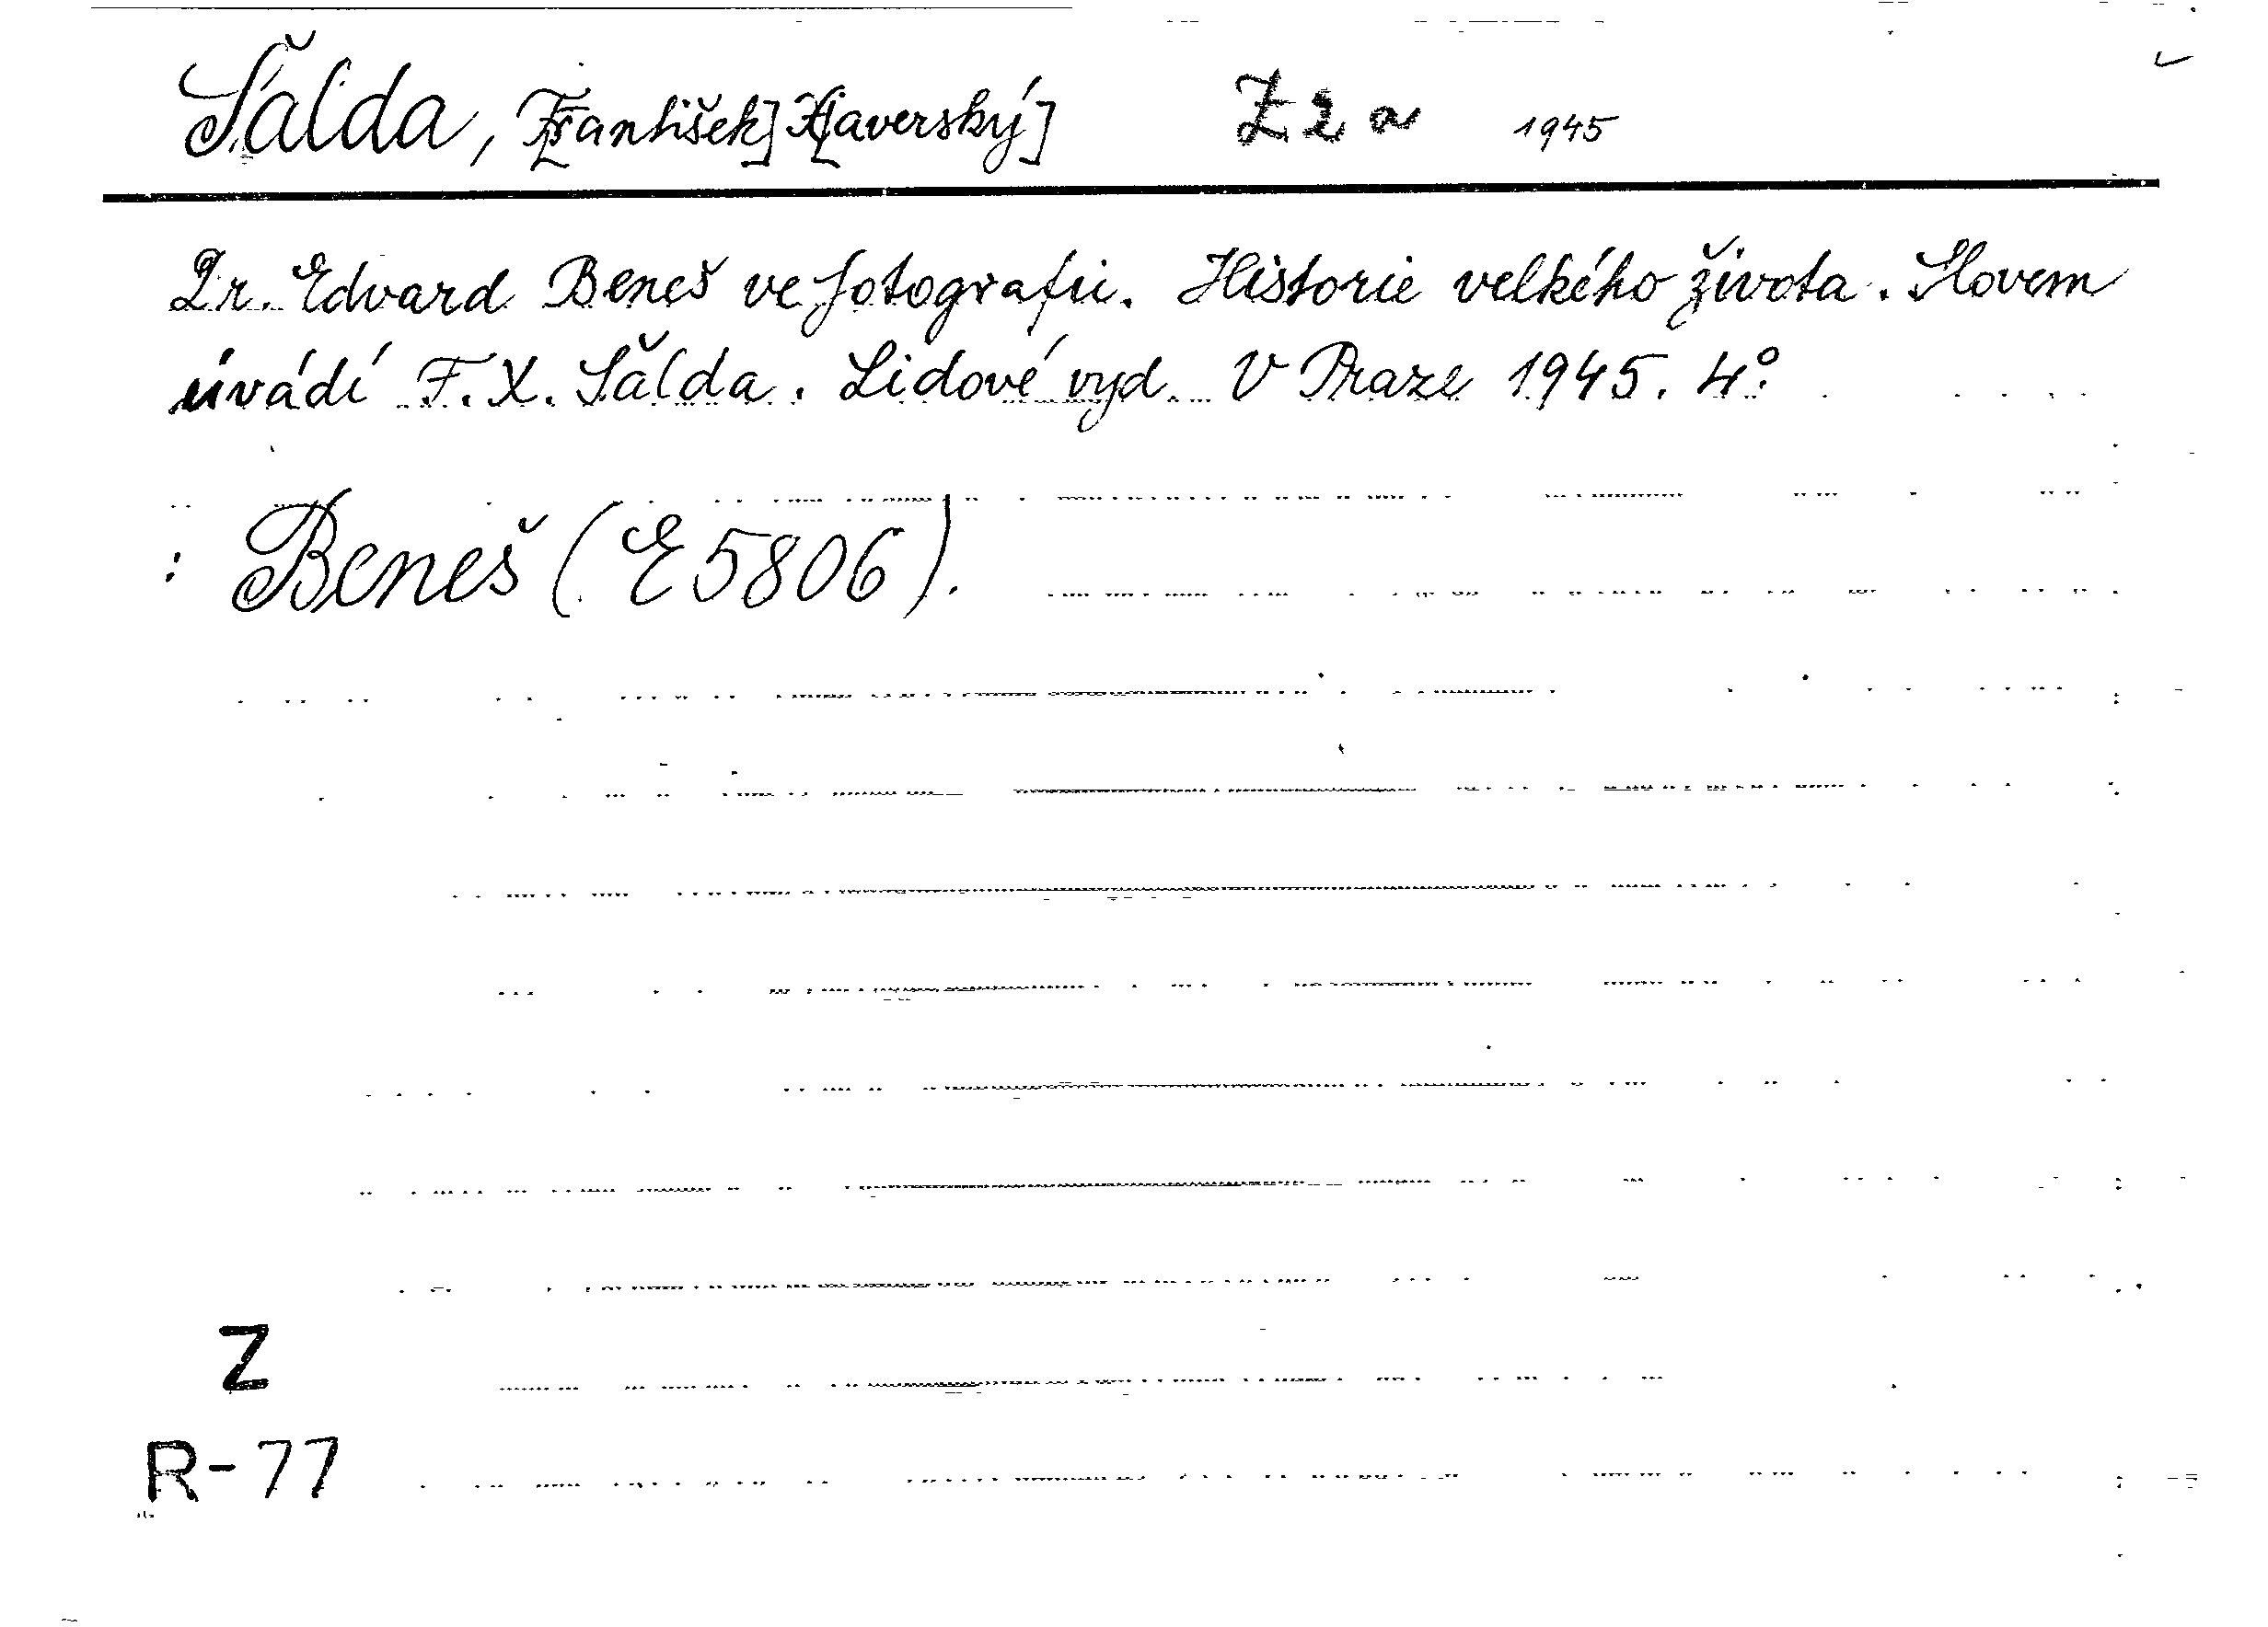 Šalda, F[rantišek] X[averský] Z 2 a 1945
Dr. Edvard Beneš ve fotografii. Historie velkého života. Slovem
úvádí F. X. Šalda. Lidové vyd. V Praze 1945. 4°.
: Beneš (E 5806).
Z
R-77